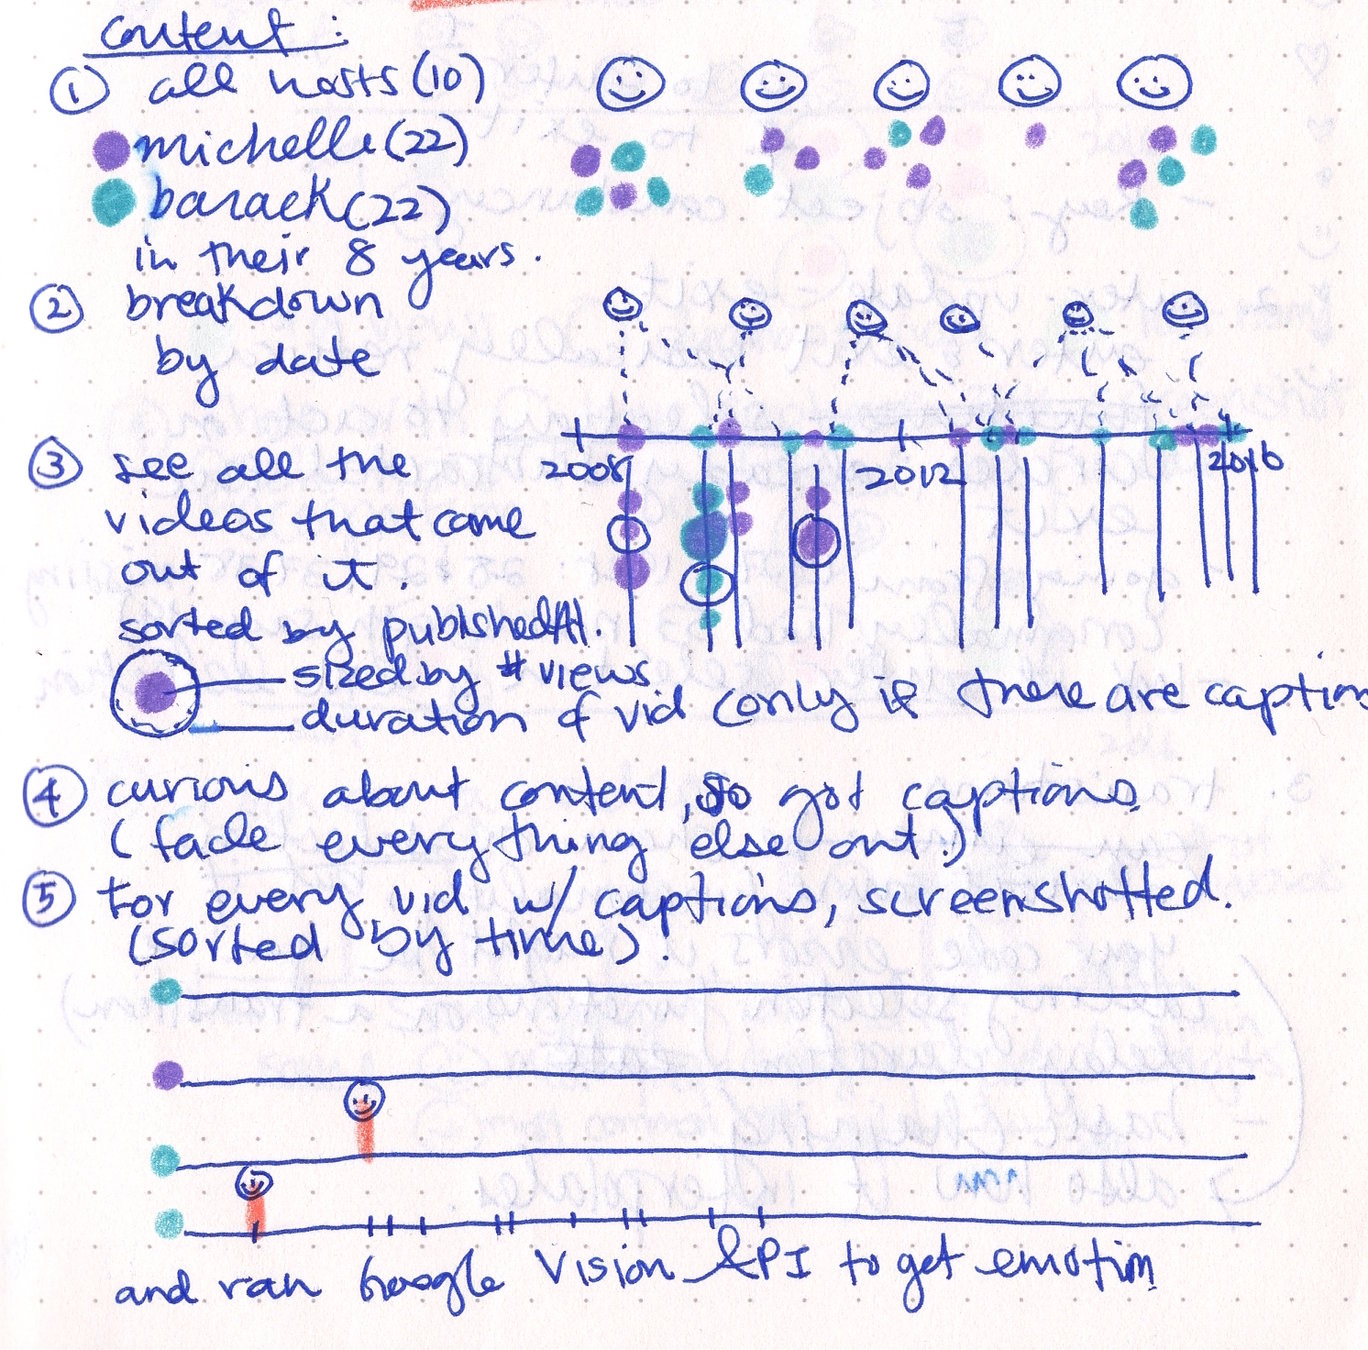 content:
① all hosts (10)
michelle (22)
barack (22)
in their 8 years.
② breakdown
by date
③ see all the
videos that came
out of it.
sorted by publishedAt.
2008 2012 2016
sized by # views
duration of vid (only if there are caption
④ curious about content, so got captions
(fade everything else out.)
⑤ for every vid w/ captions, screenshotted.
(sorted by time).
and ran Google Vision API to get emotion